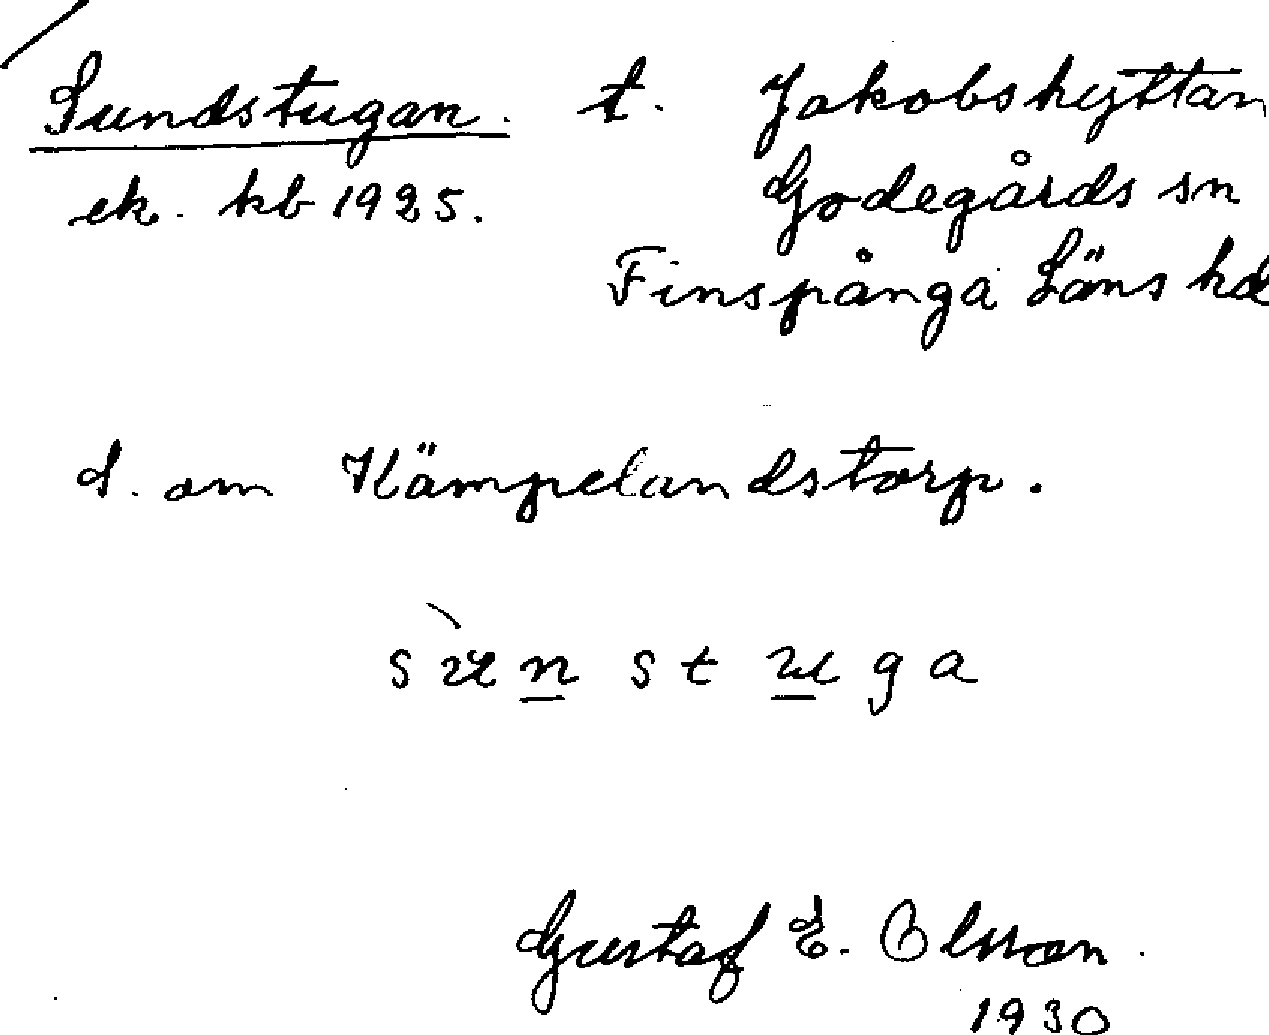 Sundstugan. t. Jakobshyttan
ek. kb 1925. Godegårds sn
Finspånga Läns hd
S. om Kämpelandstorp.
sùn stuga
Gustaf E. Olsson.
1930